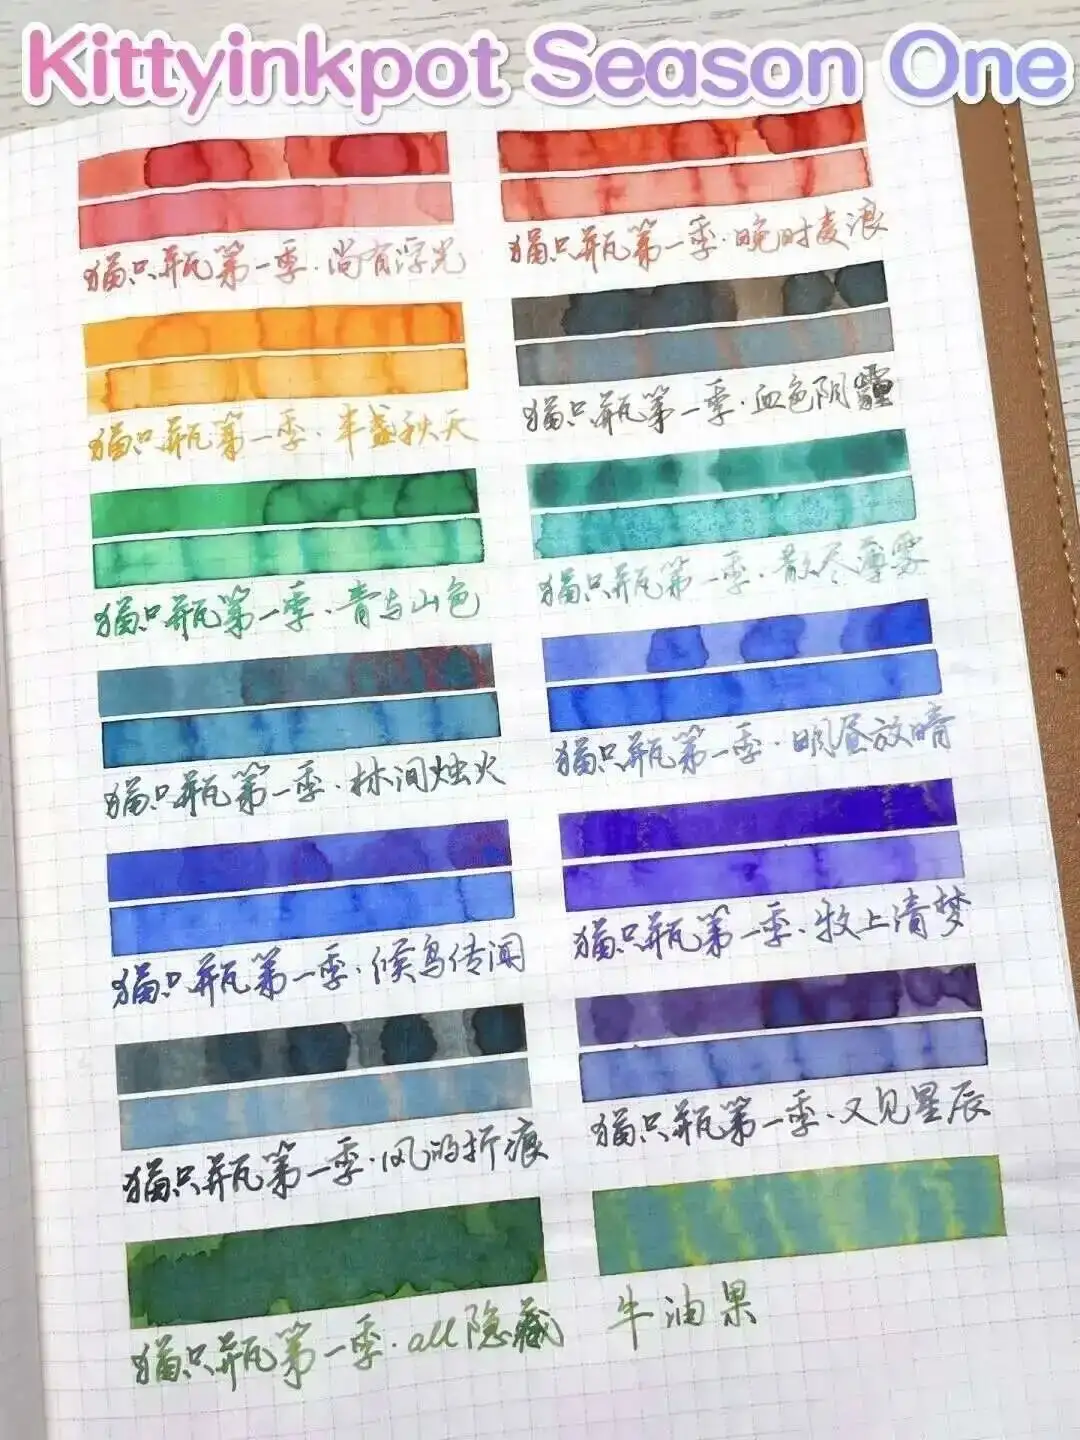 Kittyinkpot Season One
猫只瓶第一季·尚有浮光
猫只瓶第一季·晚时凌浪
猫只瓶第一季·丰盛秋天
猫只瓶第一季·血色阴霾
猫只瓶第一季·青与山色
猫只瓶第一季·散尽薄雾
猫只瓶第一季·林间烛火
猫只瓶第一季·明昼放晴
猫只瓶第一季·候鸟传闻
猫只瓶第一季·牧上清梦
猫只瓶第一季·风的折痕
猫只瓶第一季·又见星辰
猫只瓶第一季·all隐藏
牛油果